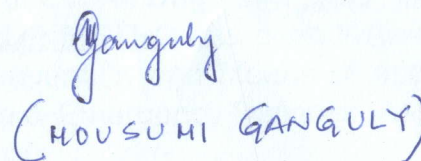 Ganguly
(MOUSUMI GANGULY)